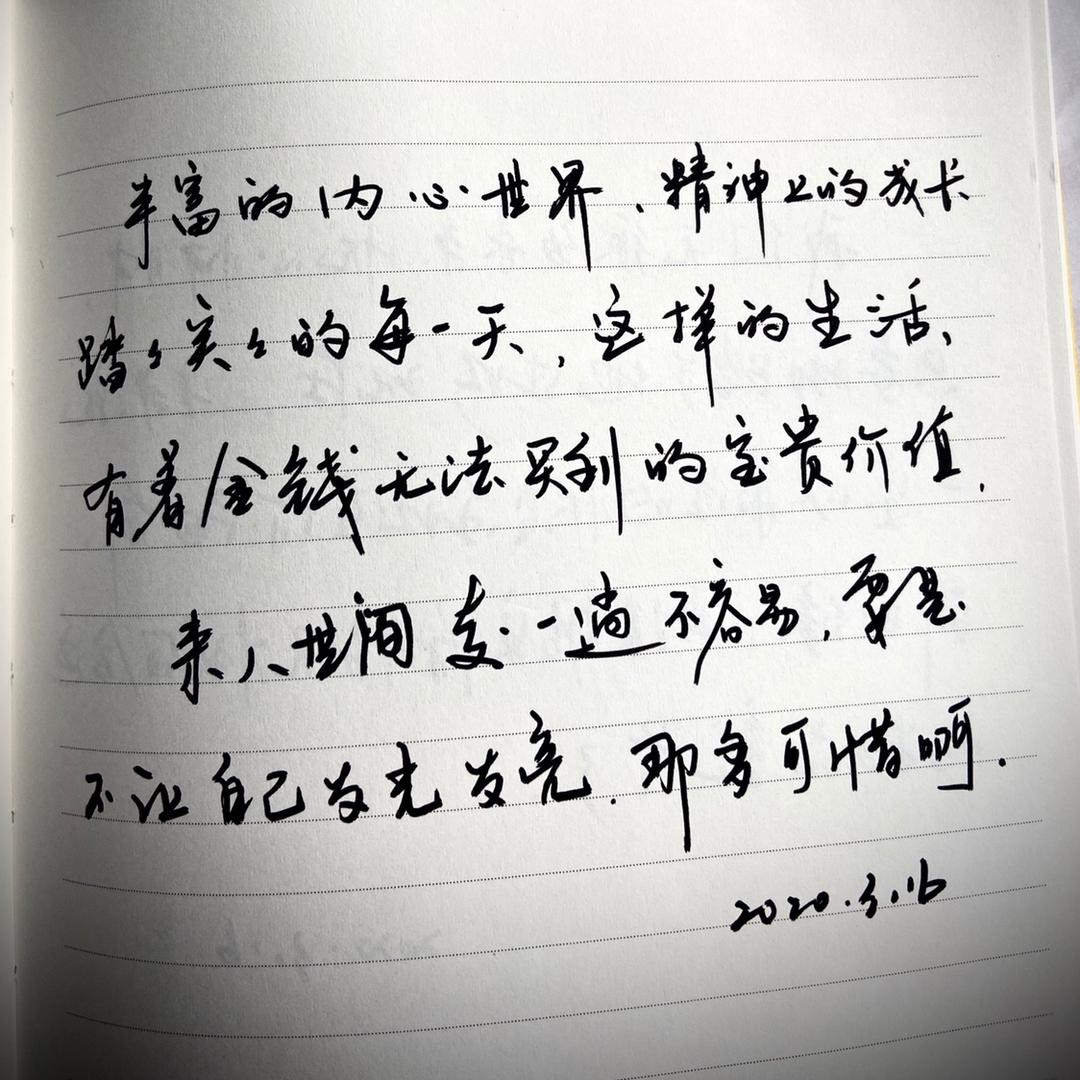 丰富的内心世界，精神上的成长
踏々实々的每一天，这样的生活，
有着金钱无法买到的宝贵价值。
来人世间走一趟不容易，要是
不让自己发光发亮，那多可惜啊。
2020.3.16